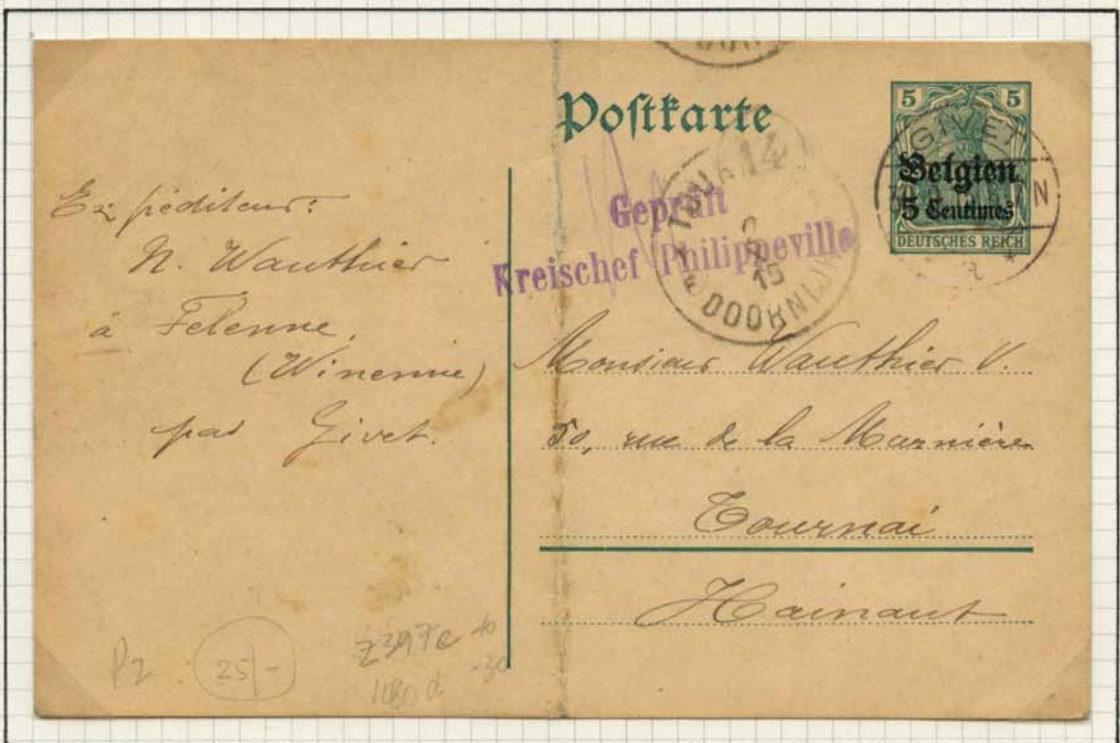 Postkarte
5 5
Belgien
5 Centimes
DEUTSCHES REICH
GIVET
N
14
15
DOORNIJK
Geprüft
Kreischef Philippeville
Expéditeur:
N. Wauthier
à Felenne
(Winenne)
par Givet.
Monsieur Wauthier V.
50, rue de la Marnière
Tournai
Hainaut
P2
25/-